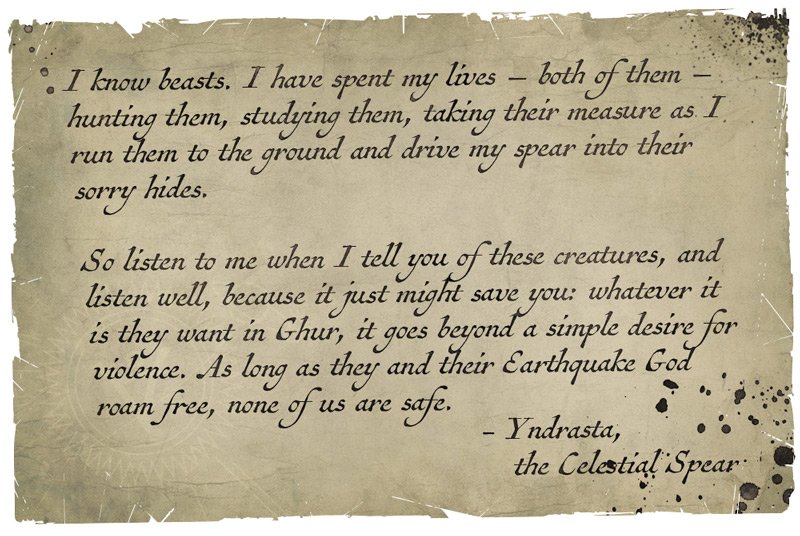 I know beasts. I have spent my lives – both of them –
hunting them, studying them, taking their measure as I
run them to the ground and drive my spear into their
sorry hides.
So listen to me when I tell you of these creatures, and
listen well, because it just might save you: whatever it
is they want in Ghur, it goes beyond a simple desire for
violence. As long as they and their Earthquake God
roam free, none of us are safe.
– Yndrasta,
the Celestial Spear